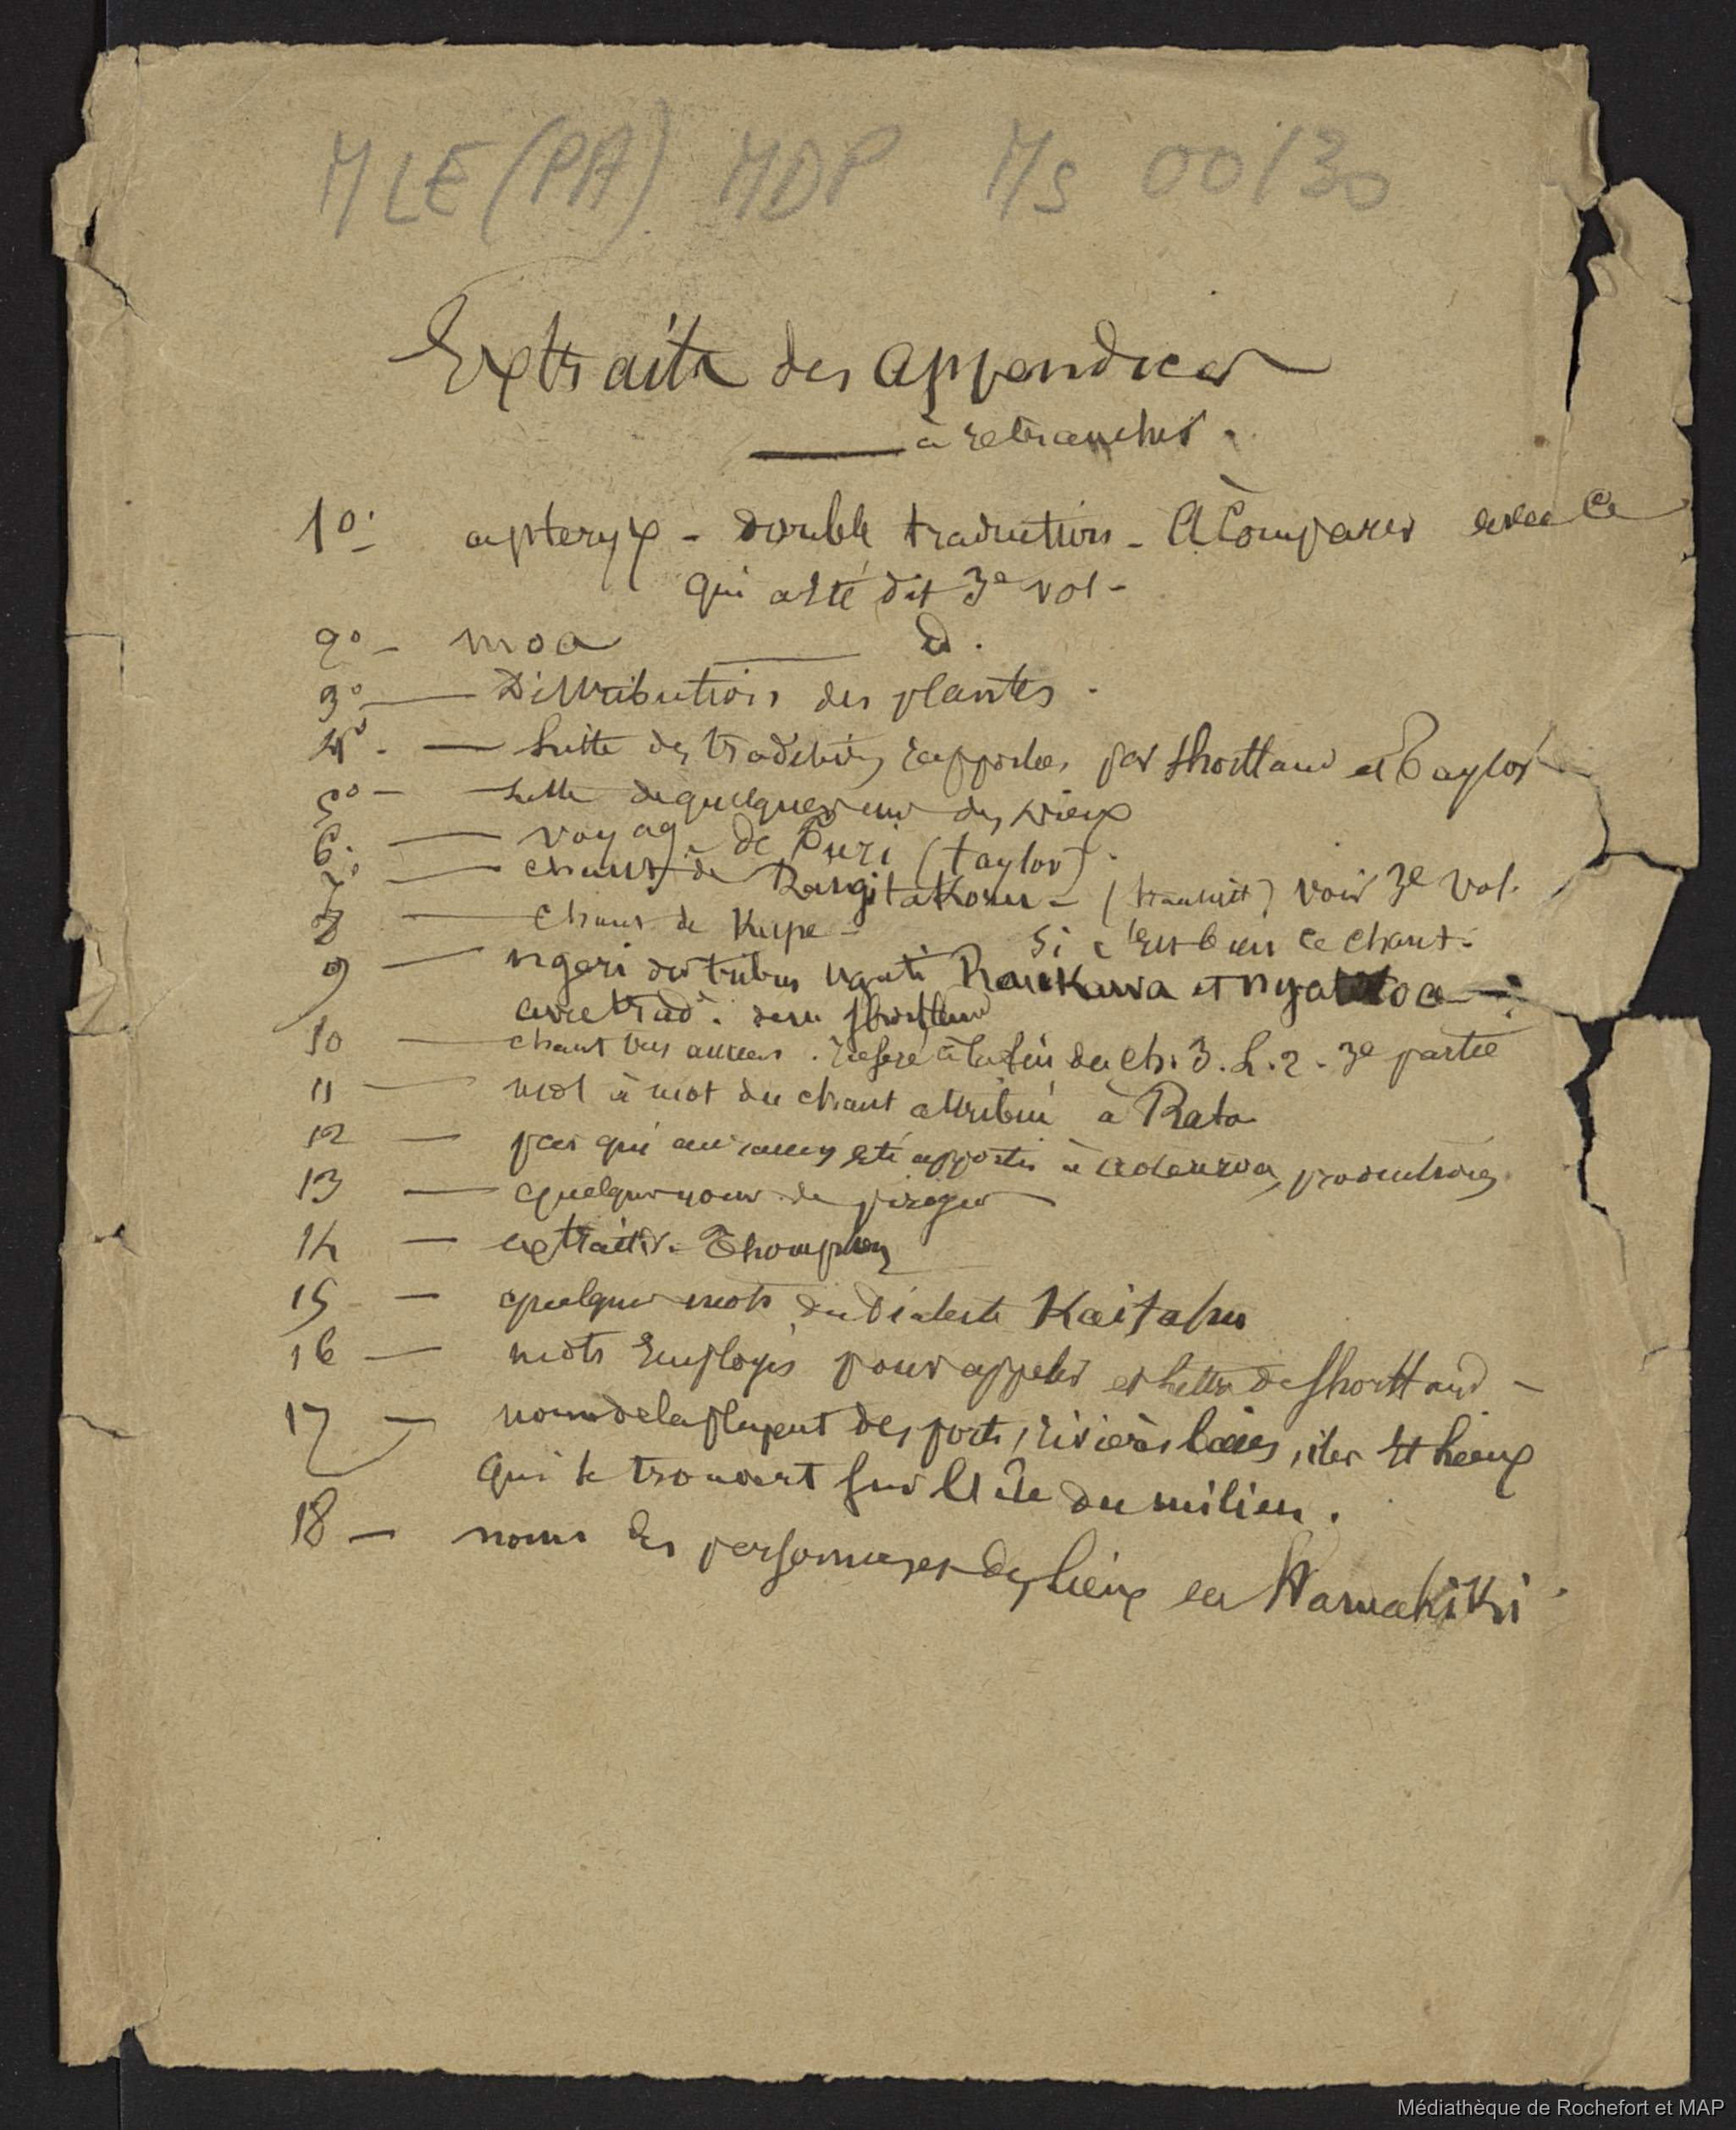 MLE (PA) MDP Ms 00130
Extraits des appendices
à retrancher.
1º. apteryx - double traduction - à comparer avec ce
qui a été dit 3e vol -
2º - moa id.
3º — Distribution des plantes.
4º. — suite des traditions rapportées par Shortland et Taylor
5º - suite de quelques uns des vieux
6. — voyage de Turi (Taylor).
7º — chant de Rangitakoru - (traduit) voir 3e vol.
8 — chant de Kupe - si c'est bien ce chant.
9 — ngeri des tribus ngati Raukawa et ngatitoa -
avec trad. dans Shortland
10 — chant très ancien. référé à la fin du ch. 3. L. 2 - 3e partie
11 — mot à mot du chant attribué à Rata
12 — par qui ont été apportés à productions
13 — quelques noms de pirogues
14 — extraits. Thompson
15 — quelques mots du dialecte Kaitahu
16 — mots employés pour appeler et lettre de Shortland -
17 — noms de la plupart des ports, rivières baies, iles et lieux
qui se trouvent sur l'ile du milieu.
18 — noms des personnages des lieux en
Médiathèque de Rochefort et MAP